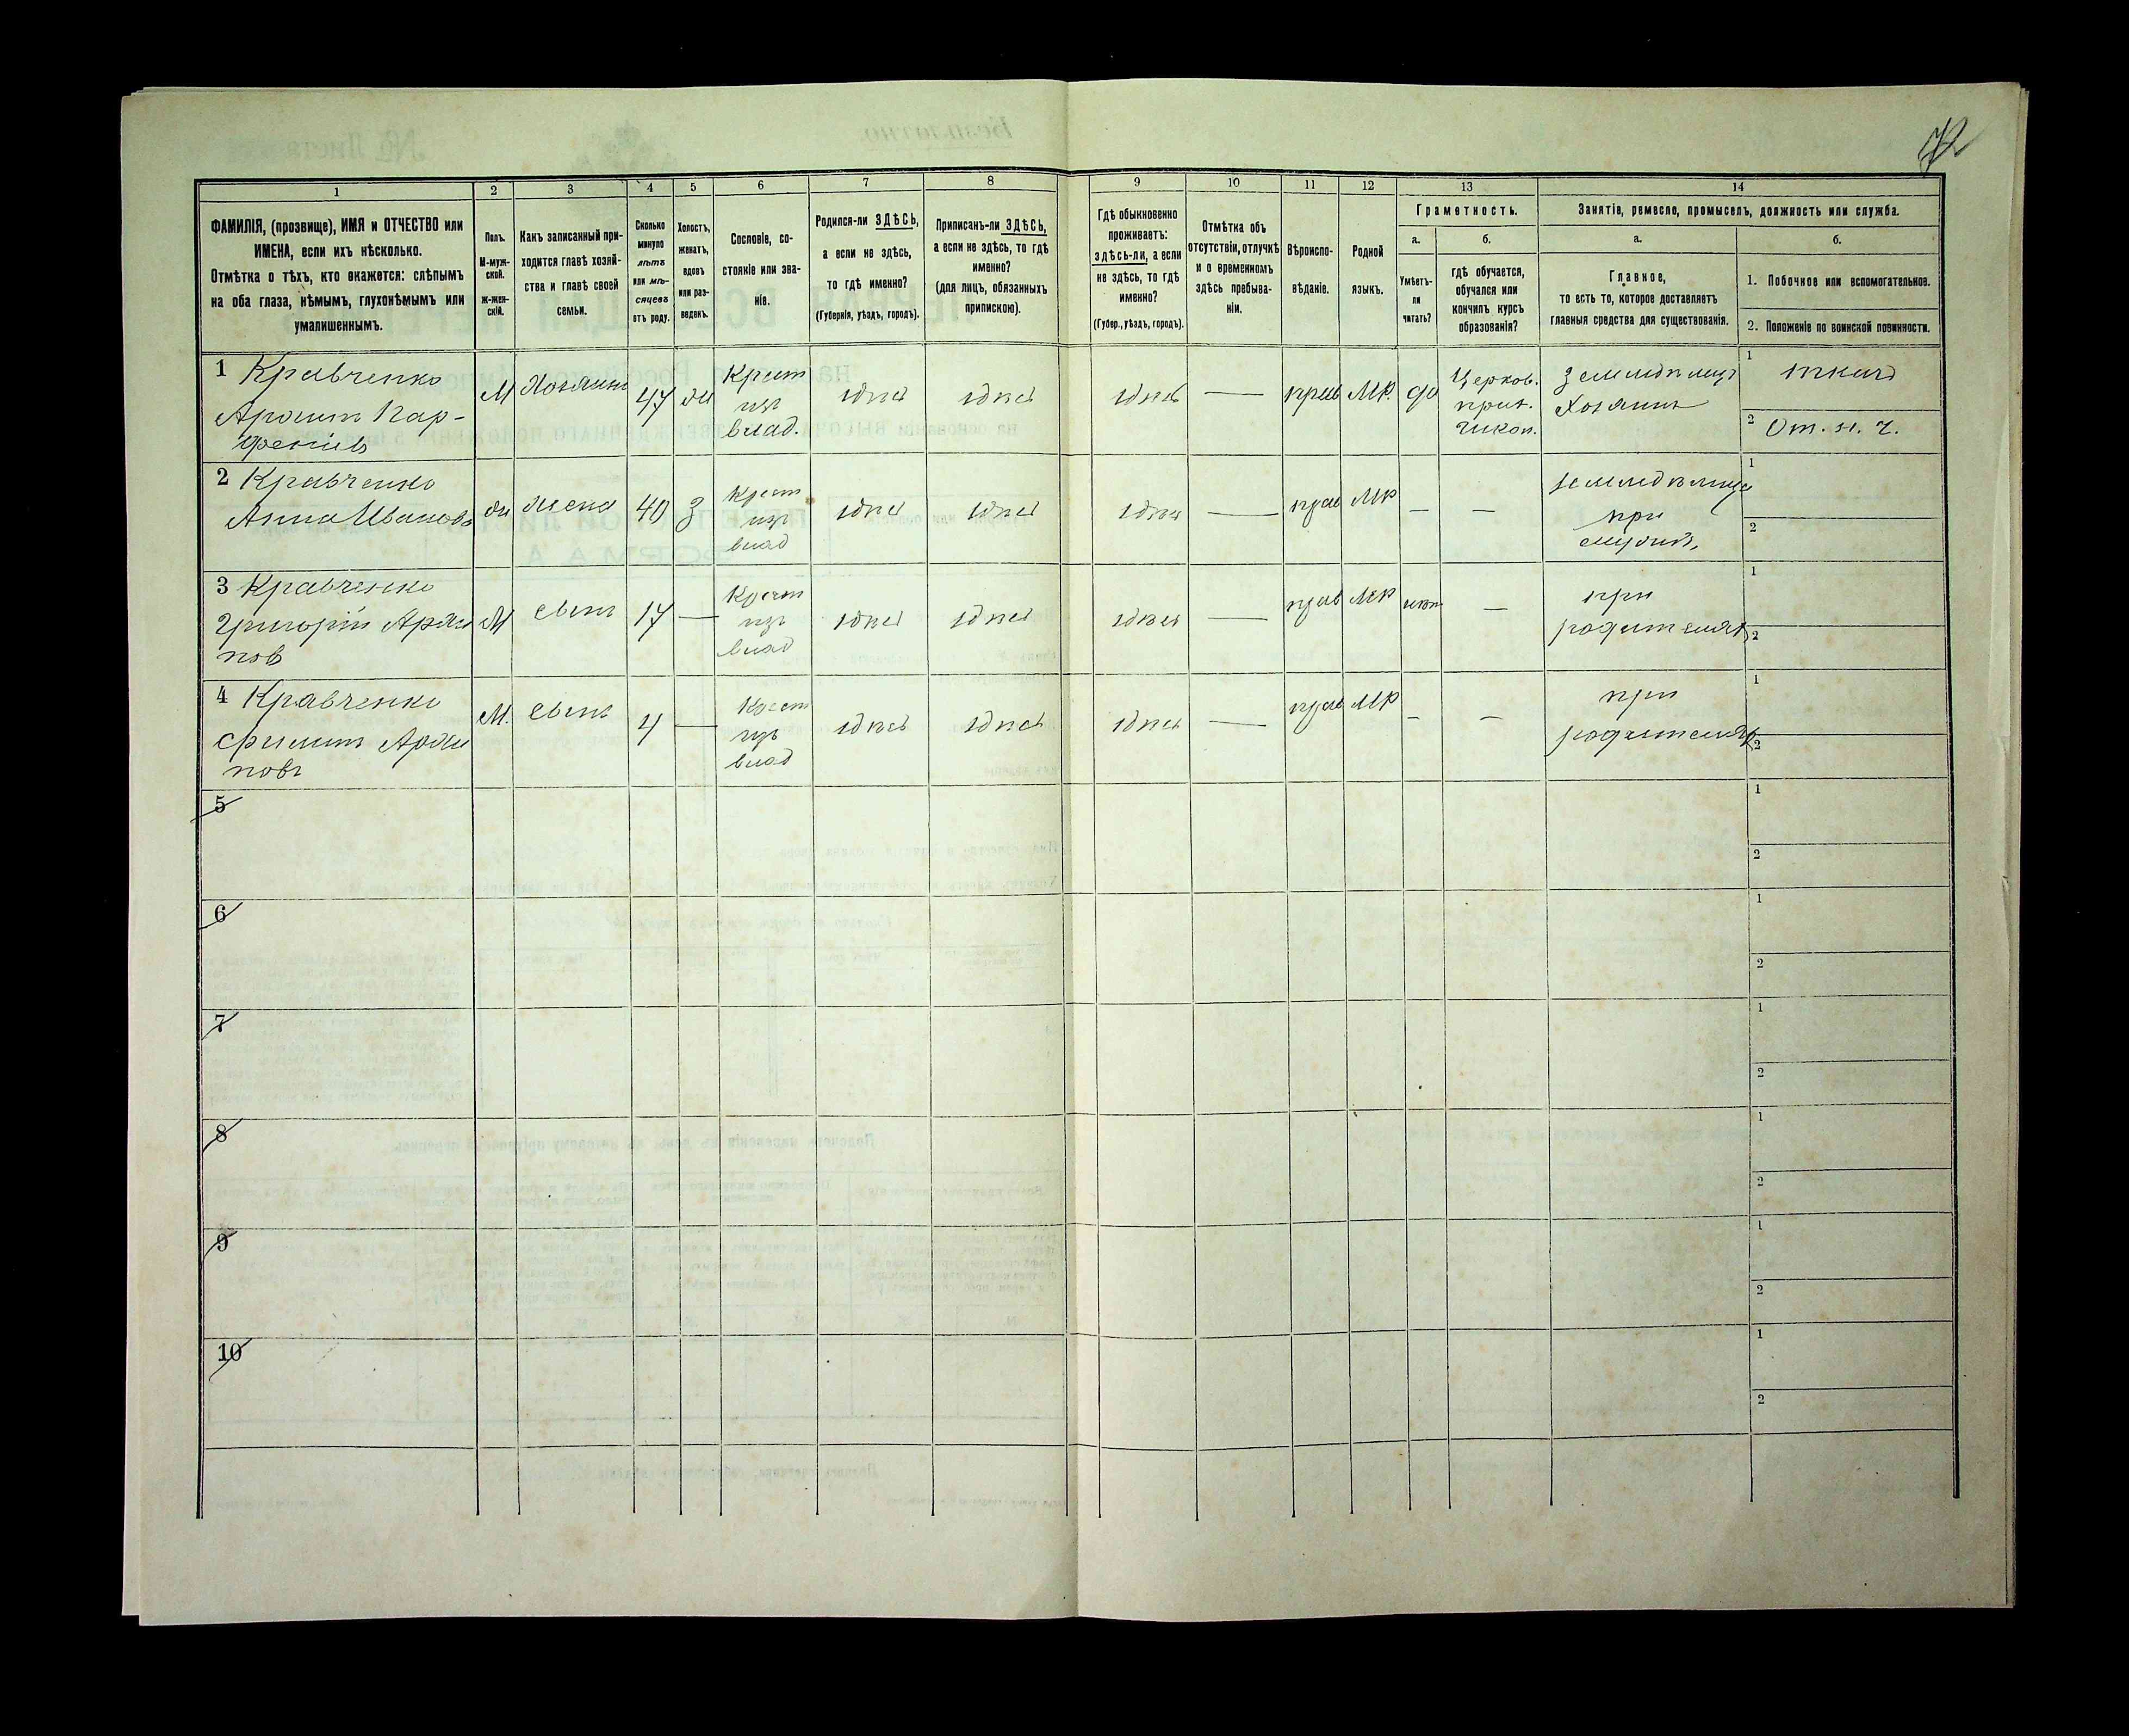 72
1 2 3 4 5 6 7 8 9 10 11 12 13 14
ФАМИЛІЯ, (прозвище), ИМЯ и ОТЧЕСТВО или
ИМЕНА, если ихъ нѣсколько.
Отмѣтка о тѣхъ, кто окажется: слѣпымъ
на оба глаза, нѣмымъ, глухонѣмымъ или
умалишеннымъ.
Полъ.
М-муж-
ской.
Ж-жен-
скій.
Какъ записанный при-
ходится главѣ хозяй-
ства и главѣ своей
семьи.
Сколько
минуло
лѣтъ
или мѣ-
сяцевъ
отъ роду.
Холостъ,
женатъ,
вдовъ
или раз-
веденъ.
Сословіе, со-
стояніе или зва-
ніе.
Родился-ли ЗДѢСЬ,
а если не здѣсь,
то гдѣ именно?
(Губернія, уѣздъ, городъ).
Приписанъ-ли ЗДѢСЬ,
а если не здѣсь, то гдѣ
именно?
(для лицъ, обязанныхъ
припискою).
Гдѣ обыкновенно
проживаетъ:
здѣсь-ли, а если
не здѣсь, то гдѣ
именно?
(Губер., уѣздъ, городъ).
Отмѣтка объ
отсутствіи, отлучкѣ
и о временномъ
здѣсь пребыва-
ніи.
Вѣроиспо-
вѣданіе.
Родной
языкъ.
Грамотность.
а.
Умѣетъ-
ли
читать?
б.
гдѣ обучается,
обучался или
кончилъ курсъ
образованія?
Занятіе, ремесло, промыселъ, должность или служба.
а.
Главное,
то есть то, которое доставляетъ
главныя средства для существованія.
б.
1. Побочное или вспомогательное.
2. Положеніе по воинской повинности.
1 Кравченко
Архипъ Пар-
феніевъ
М
Хозяинъ
47
Крест
изъ
влад.
здѣсь
здѣсь
здѣсь
—
прав
МР
да
Церков.
прих.
школ.
Земледѣлецъ
Хозяинъ
1 ткачъ
2
2 Кравченко
Анна Иванова
жена
40
З
Крест
изъ
влад
здѣсь
здѣсь
здѣсь
—
прав
МР
—
—
земледѣлица
при
мужѣ
1
2
3 Кравченко
Григорій Архи
пов
М
сынъ
17
—
Крест
изъ
влад
здѣсь
здѣсь
здѣсь
—
прав
МР
нѣт
—
при
родителях
1
2
4 Кравченко
Филипъ Архи
повъ
М.
сынъ
4
—
Крест
изъ
влад
здѣсь
здѣсь
здѣсь
—
прав
МР
—
—
при
родителях
1
2
5
1
2
6
1
2
7
1
2
8
1
2
9
1
2
10
1
2